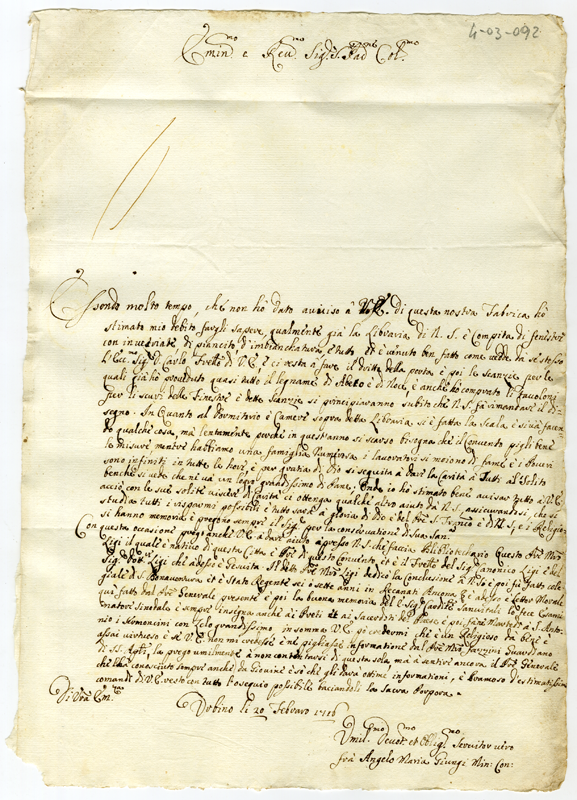 4-03-092
Emin.mo e Reu.mo Sig.r Pad.
Essendo molto tempo, che non hò dato auuiso à V.E. di questa nostra Fabrica hò
stimato mio debito fargli sapere, qualmente già la Libraria di N. S. è Compita di fenestre
con inuetriate di piancito d'imbianchatura, è tutto et è uenuto ben fatto come uedde da se stesso
Carlo di V. E. è ci resta à fare il della porta è poi le Scanzie per le
quali già hò proueduto quasi tutto il legname di Abeto è di Noce, è anche hò comprato li
per li scuri delle Finestre è dette Scanzie si principiaranno subito che N. S. rimandarà il di-
segno. In Quanto al Dormitorio è Camere sopra detta Libraria si è fatta la Scala è si uà facen-
do qualche cosa, mà lentamente perche in quest'anno si scarso bisogna che il Conuento pigli bene
le misure mentre habbiamo una famiglia Numerosa è lauoratori si moiono di fame è i Poueri
sono infiniti in tutte le hore, è per gratia di Dio si seguita à dare la Carità à Tutti al Solito
benche si uede che ni uà un logo grandissimo di Pane. Onde io hò stimato bene auisar tutto à V. E.
acciò con le sue solite uiscere di Carità ci ottenga qualche altro aiuto da N. S. assicurandosi, che si
studia tutti i risparmi possibili è tutto sarà à gloria di Dio del P.re S. Franco è di N. S. è i Religio-
si hanno memoria è pregono sempre il Sig.re per la conseruatione di Sua San.
Con questa occasione prego anche V. E. à dare aiuto appresso N. S. che faccia Bibliotecario Questo P.re M.ro
Ligi il quale è natiuo di questa Città è di questo Conuento, et è il Frello del Sig. Canonico Ligi è del
Sig. Ligi che adesso è Gesuita. Il detto P.re M.ro Ligi dedicò la Conclusione à N. S. è poi fù fatto Colle-
giale di S. Bonauentura et è Stato Regente sei è sette anni in Recanati Ancona è adesso è Lettor Morale
qui fatto dal P.re Generale presente è poi la buona memoria del Sanuitale lo fece Esami-
natore Sinodale è sempre insegna anche à i Preti et ai Sacerdoti del Duomo è poi
nio i Nomoncini con zelo grandissimo insomma V. E. pò credermi che è un Religioso da bene è
assai uirtuoso è sè V. E. non mi credesse è ne pigliasse informatione dal P.re M.ro Guardiano
di SS. Apli, la prego umilmente à non contentarsi di questa sola, ma à sentirsi ancora il P.re Generale
che l'hà conosciuto sempre anche da Giouine è sò che gli darà ottime informationi, è bramoso d'estimatissimi
comandi di V. E. resto con tutto l'ossequio possibile baciandoli la Sacra Porpora.
Di Vra Em.za
Vrbino li 20 Febraro 1716
Vmil.mo Deuot.mo et Oblig.mo Seruitor uero
frà Angelo Maria Giungi Min: Con: